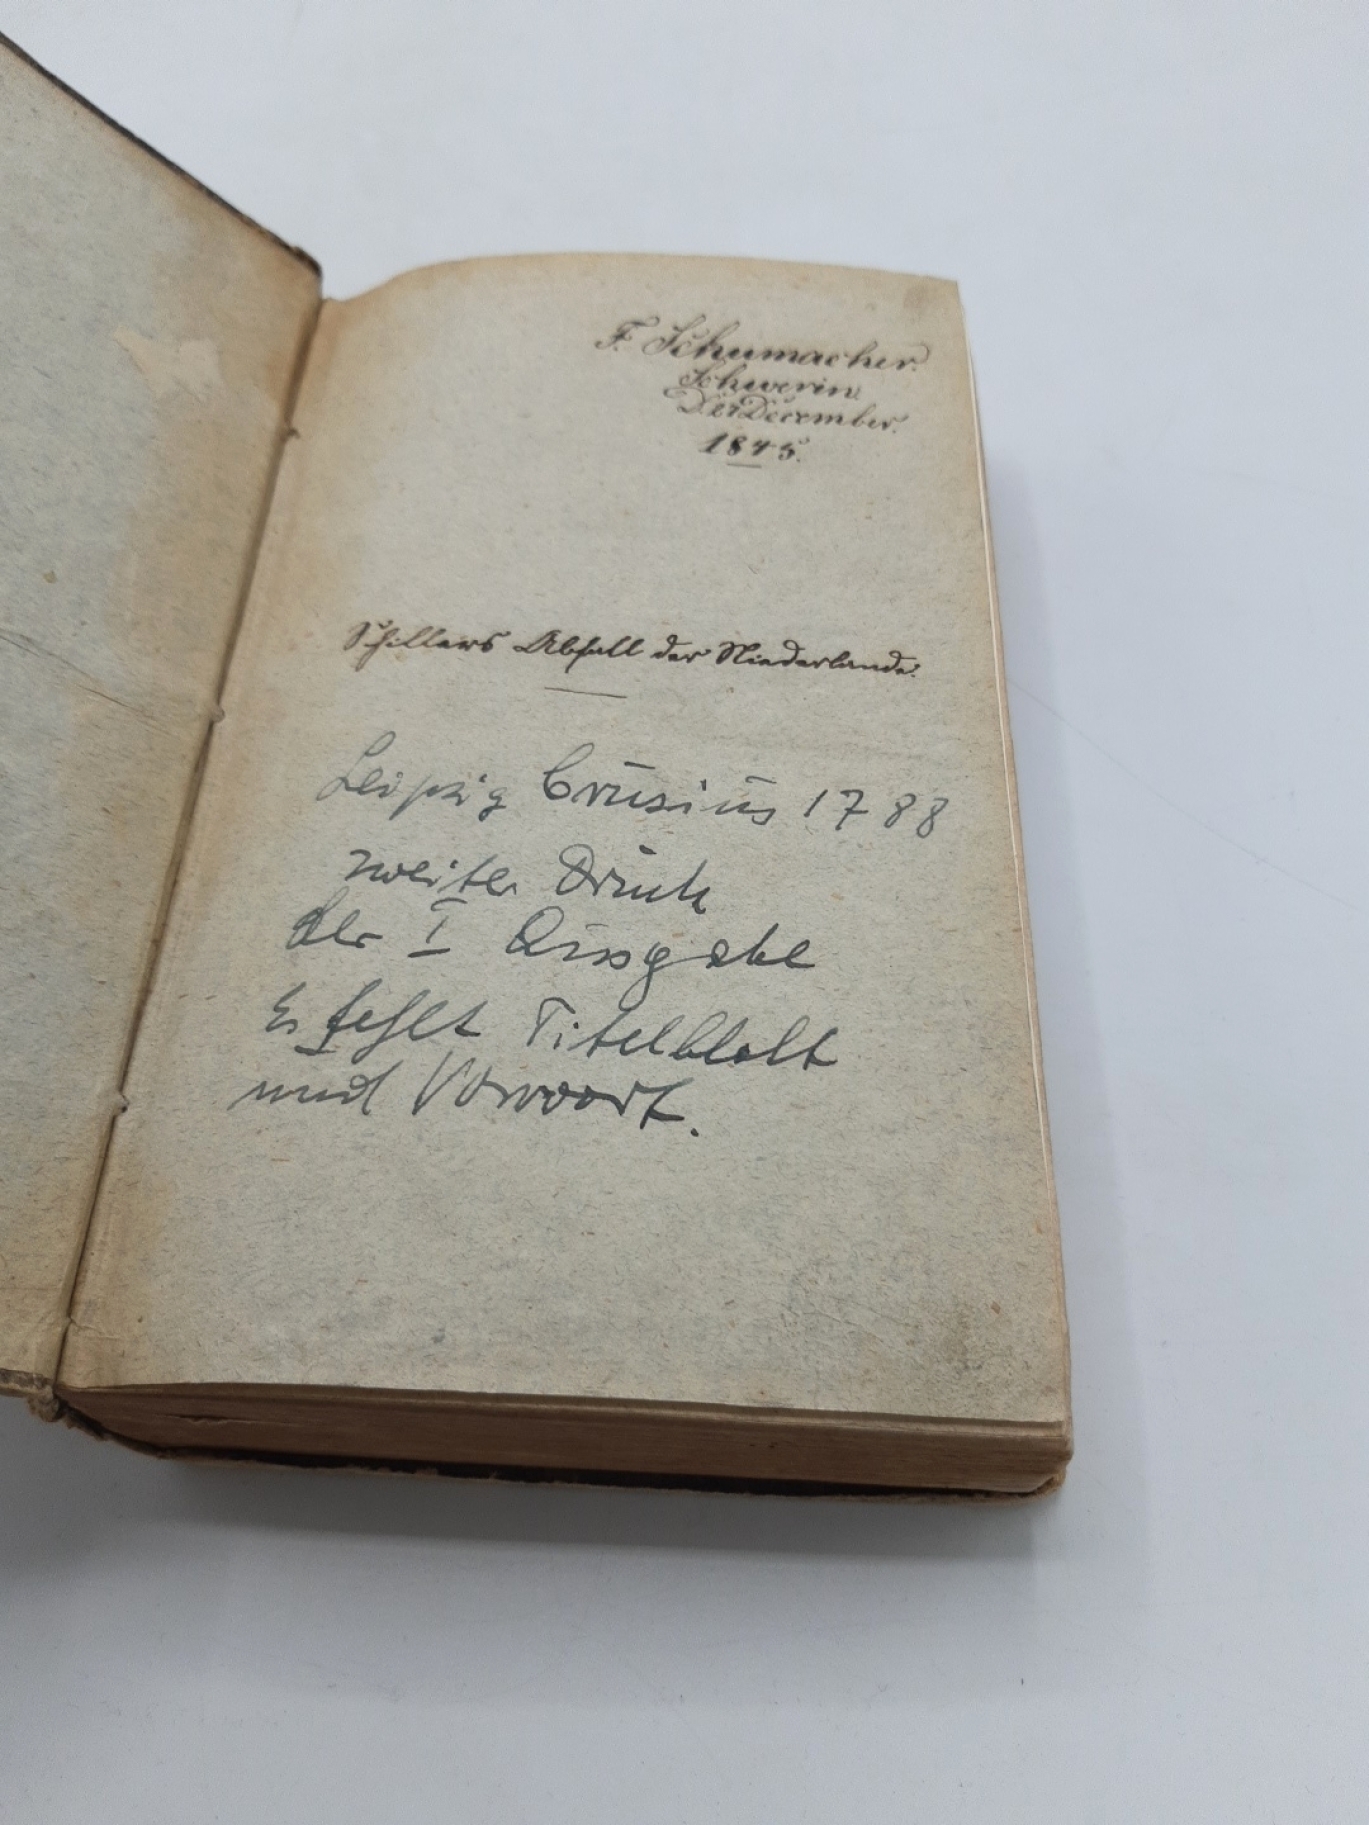 F. Schumacher.
Schwerin
December.
1845.
Schillers Abfall der Niederlande.
Leipzig Crusius 1788
zweiter Druck
der I Ausgabe
Es fehlt Titelblatt
und Vorwort.